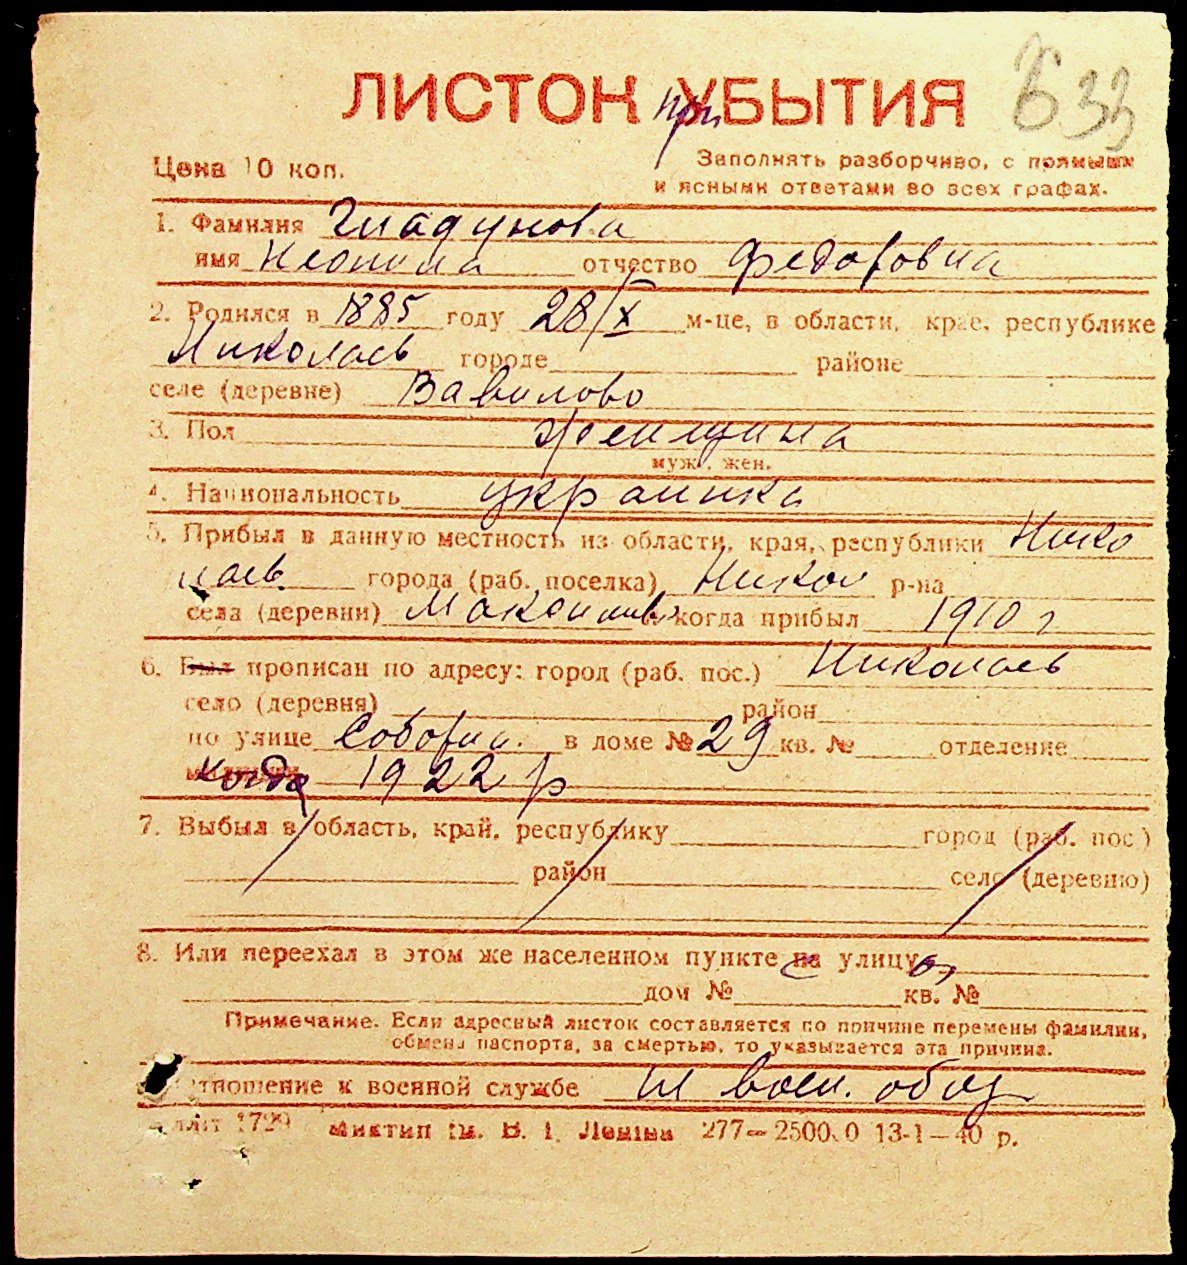 ЛИСТОК УБЫТИЯ
при
633
Цена 10 коп.
Заполнять разборчиво, с прямыми
и ясными ответами во всех графах.
1. Фамилия Гладунова
имя отчество Федоровна
2. Родился в 1885 году 28/X м-це, в области, крае, республике
Николаев городе районе
селе (деревне) Вавилово
3. Пол женщина
муж., жен.
4. Национальность украинка
5. Прибыл в данную местность из области, края, республики Нико
лаев города (раб. поселка) Никол р-на
села (деревни) когда прибыл 1910 г
6. Был прописан по адресу: город (раб. пос.) Николаев
село (деревня) район
по улице Соборн. в доме № 29 кв. № отделение
милиции когда 1922 р
7. Выбыл в область, край, республику город (раб. пос.)
район село (деревню)
8. Или переехал в этом же населенном пункте на улицу
дом № кв. №
Примечание. Если адресный листок составляется по причине перемены фамилии,
обмена паспорта, за смертью, то указывается эта причина.
тношение к военной службе н воен. обяз
лліт 1729 Миктип ім. В. І. Леніна 277—25000.0 13-1—40 р.